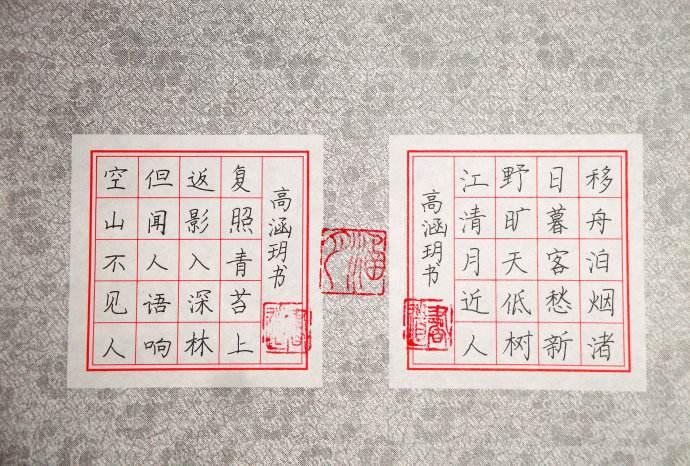 空山不见人
但闻人语响
返影入深林
复照青苔上
高涵玥书
移舟泊烟渚
日暮客愁新
野旷天低树
江清月近人
高涵玥书